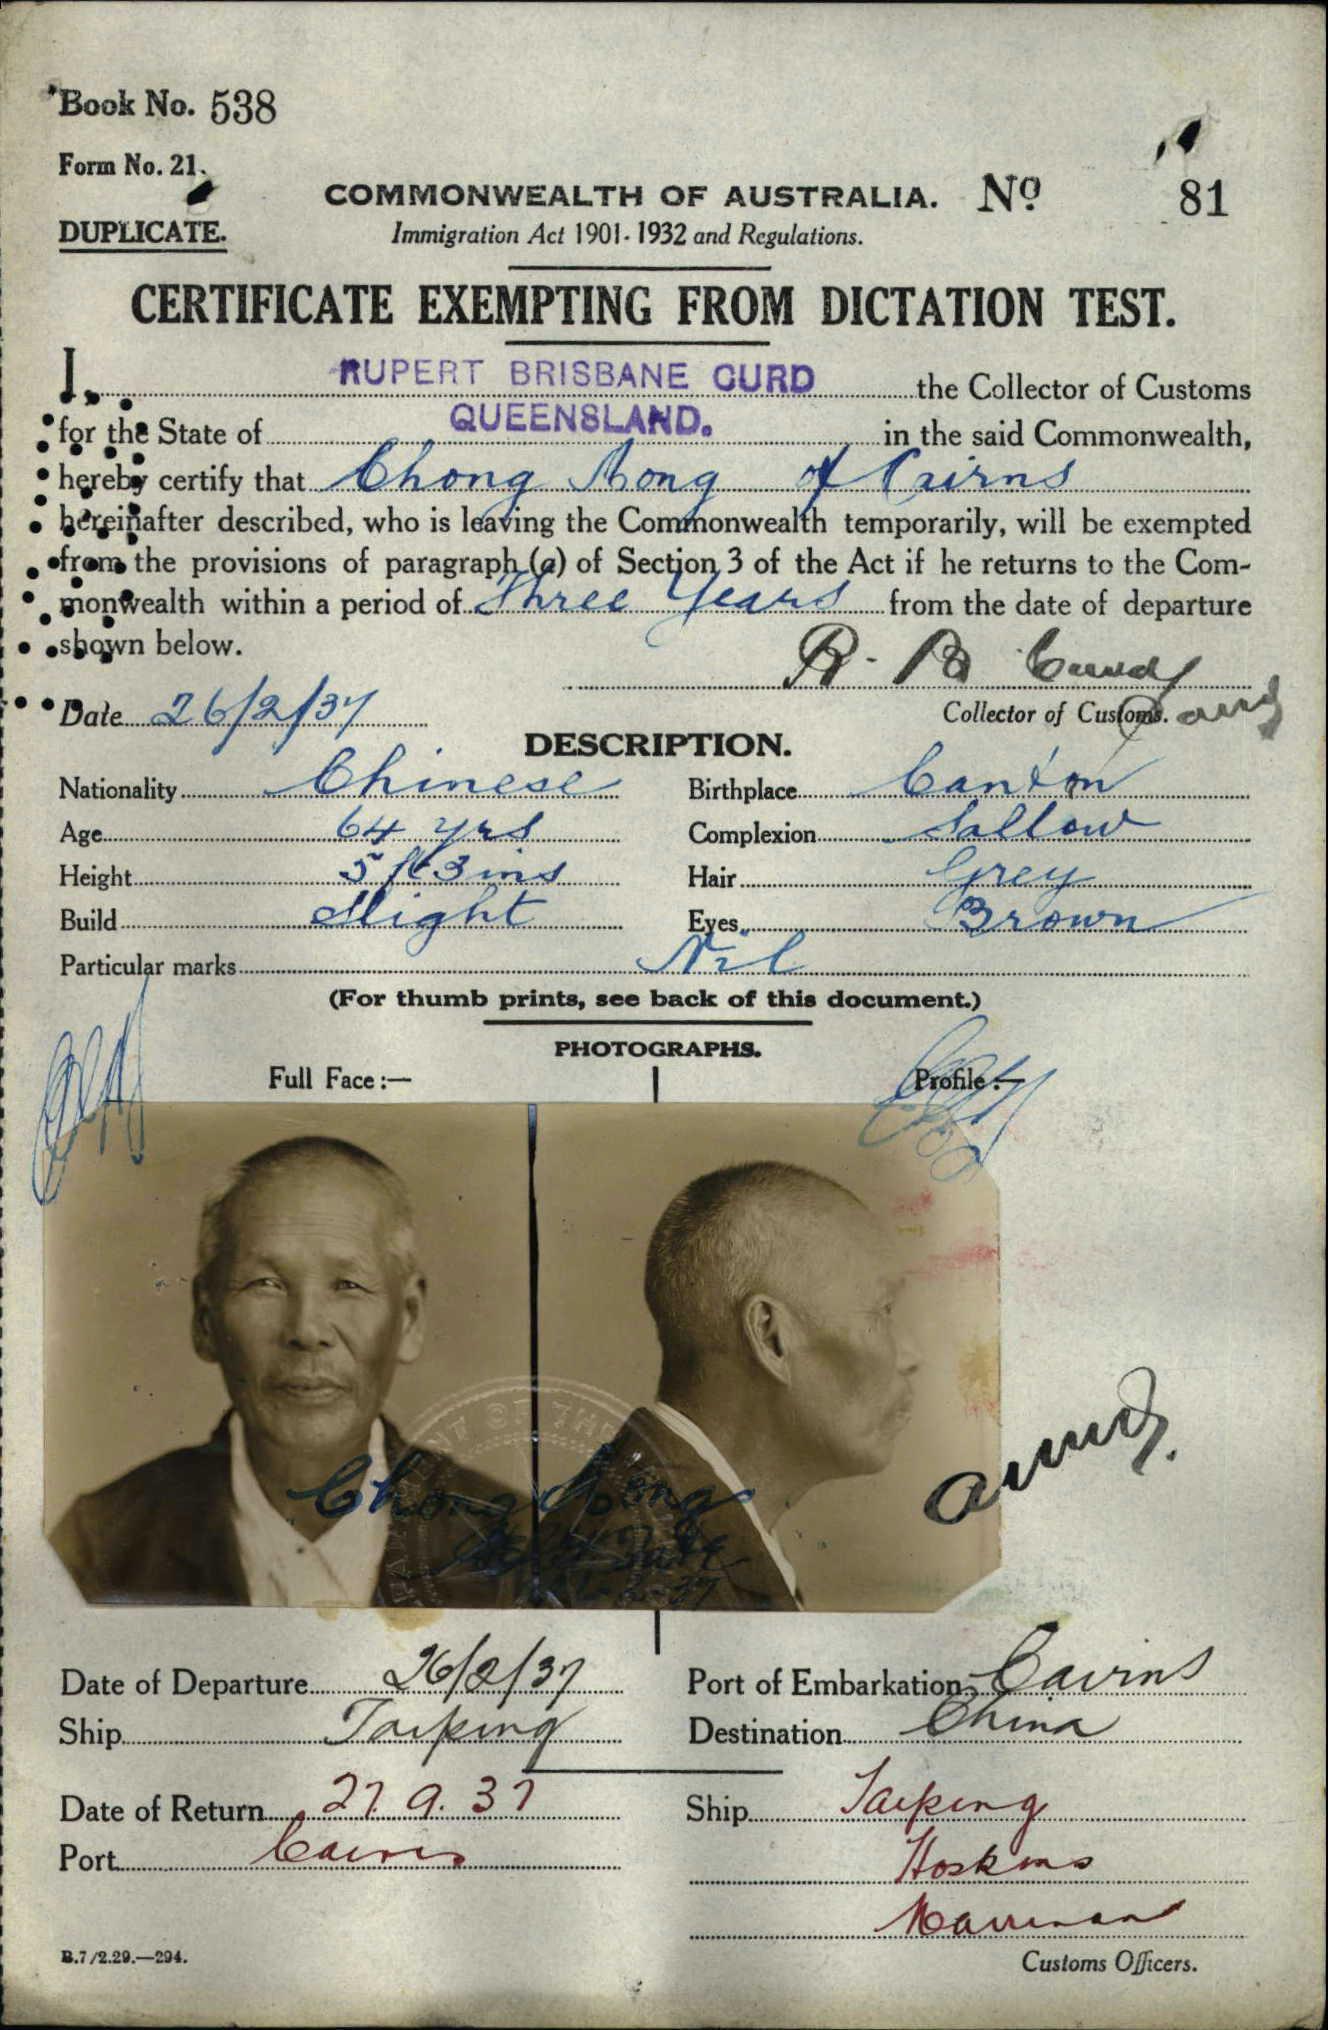 Book No. 538
Form No. 21.
DUPLICATE.
COMMONWEALTH OF AUSTRALIA. No 81
Immigration Act 1901-1932 and Regulations.
CERTIFICATE EXEMPTING FROM DICTATION TEST.
I, RUPERT BRISBANE CURD the Collector of Customs
for the State of QUEENSLAND. in the said Commonwealth,
hereby certify that Chong Kong of Cairns
hereinafter described, who is leaving the Commonwealth temporarily, will be exempted
from the provisions of paragraph (a) of Section 3 of the Act if he returns to the Com-
monwealth within a period of Three Years from the date of departure
shown below.
R. B Curd
Date 26/2/37 Collector of Customs.
DESCRIPTION.
Nationality Chinese Birthplace Canton
Age 64 yrs Complexion Sallow
Height 5 ft 3 ins Hair Grey
Build Slight Eyes Brown
Particular marks Nil
(For thumb prints, see back of this document.)
PHOTOGRAPHS.
Full Face:— Profile:—
Chong
Date of Departure 26/2/37 Port of Embarkation Cairns
Ship Taiping Destination China
Date of Return 27.9.37 Ship Taiping
Port Cairns Hoskins
B.7/2.29.—294. Customs Officers.